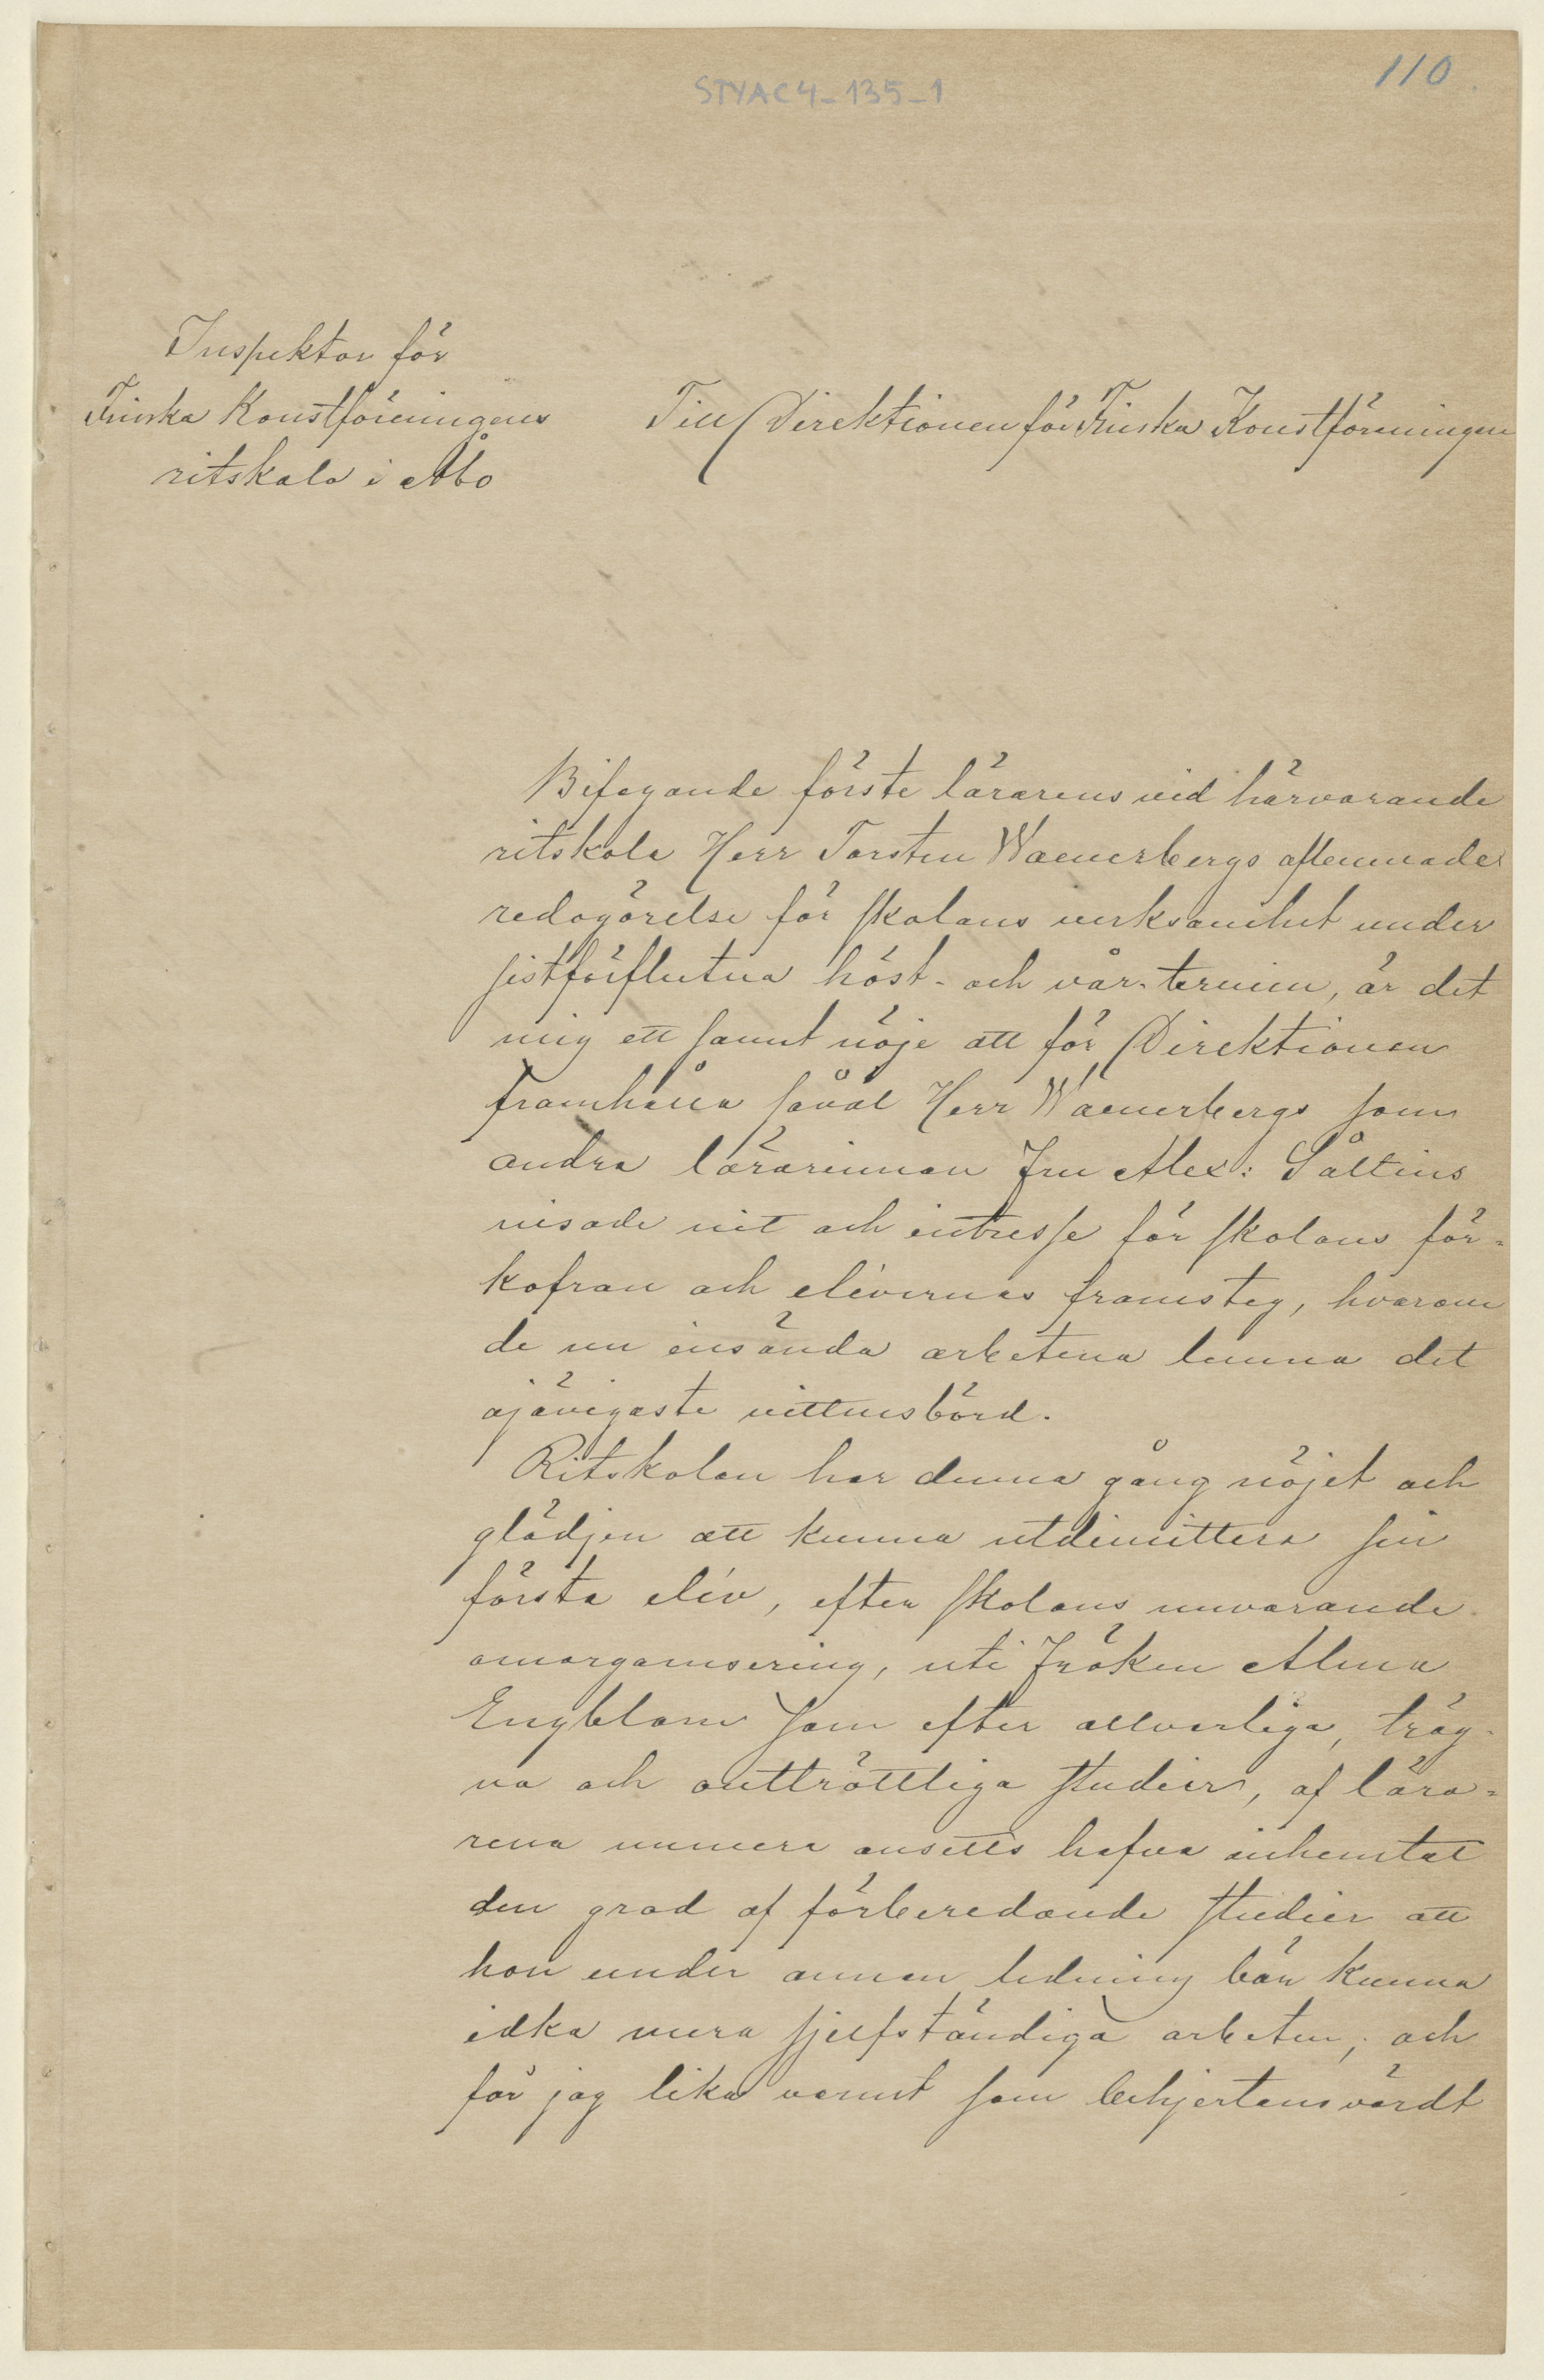 110.
STYAC4-135-1
Inspektor för
Finska Konstföreningens
ritskola i Åbo
Till Direktionen för Finska Konstföreningen
Bifogande förste lärarens vid härvarande
ritskola Herr Torsten Waenerbergs aflemnade
redogörelse för skolans verksamhet under
sistförflutna höst- och vår-termin, är det
mig ett sannt nöje att för Direktionen
framhålla såväl Herr Waenerbergs som
andra lärarinnan Fru Alex: Såltins
visade nit och intresse för skolans för-
kofran och elevernas framsteg, hvarom
de nu insända arbetena lemna det
ojävigaste vittnesbörd.
Ritskolan har denna gång nöjet och
glädjen att kunna utdimittera sin
första elév, efter skolans nuvarande
omorganisering, uti Fröken Alma
Engblom som efter allvarliga, träg-
na och outtröttliga studier, af lära-
rena numera ansetts hafva inhemtat
den grad af förberedande studier att
hon under annan ledning bör kunna
idka mera sjelfständiga arbeten, och
får jag lika varmt som behjertansvärdt